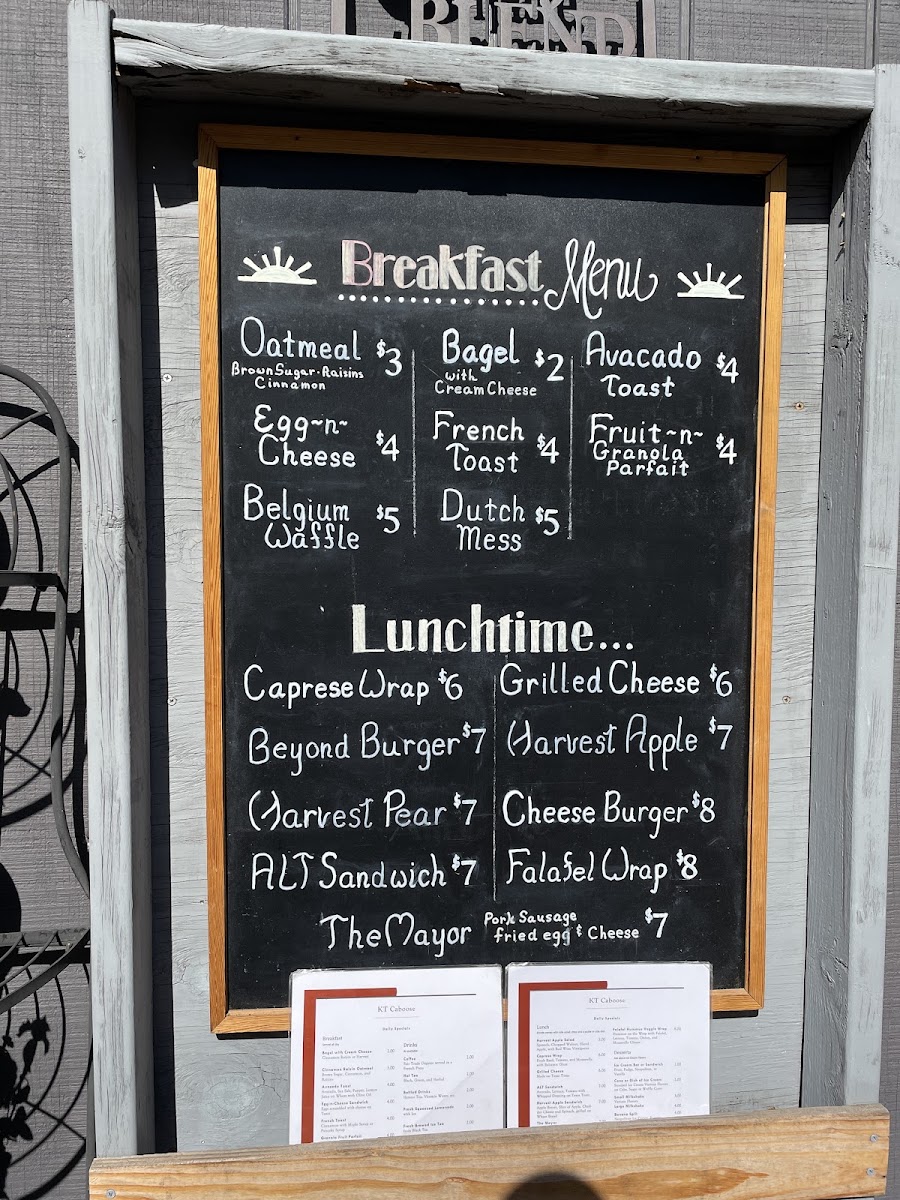 BLEND
Breakfast Menu
Oatmeal $3
Brown Sugar · Raisins
Cinnamon
Egg~n~
Cheese $4
Belgium
Waffle $5
Bagel $2
with
Cream Cheese
French
Toast $4
Dutch
Mess $5
Avacado
Toast $4
Fruit~n~
Granola
Parfait $4
Lunchtime...
Caprese Wrap $6
Beyond Burger $7
Harvest Pear $7
ALT Sandwich $7
Grilled Cheese $6
Harvest Apple $7
Cheese Burger $8
Falafel Wrap $8
The Mayor Pork Sausage
fried egg & Cheese $7
KT Caboose
Daily Specials
Breakfast
Bagel with Cream Cheese
Cinnamon Raisin Oatmeal
Avocado Toast
Egg-n-Cheese Sandwich
French Toast
Granola Fruit Parfait
Drinks
Coffee
Hot Tea
Bottled Drinks
Fresh Squeezed Lemonade
Fresh Brewed Ice Tea
KT Caboose
Daily Specials
Lunch
Harvest Apple Salad
Caprese Wrap
Grilled Cheese
ALT Sandwich
Harvest Apple Sandwich
The Mayor
Falafel Hummus Veggie Wrap
Desserts
Ice Cream Bar or Sandwich
Cone or Dish of Ice Cream
Small Milkshake
Large Milkshake
Banana Split